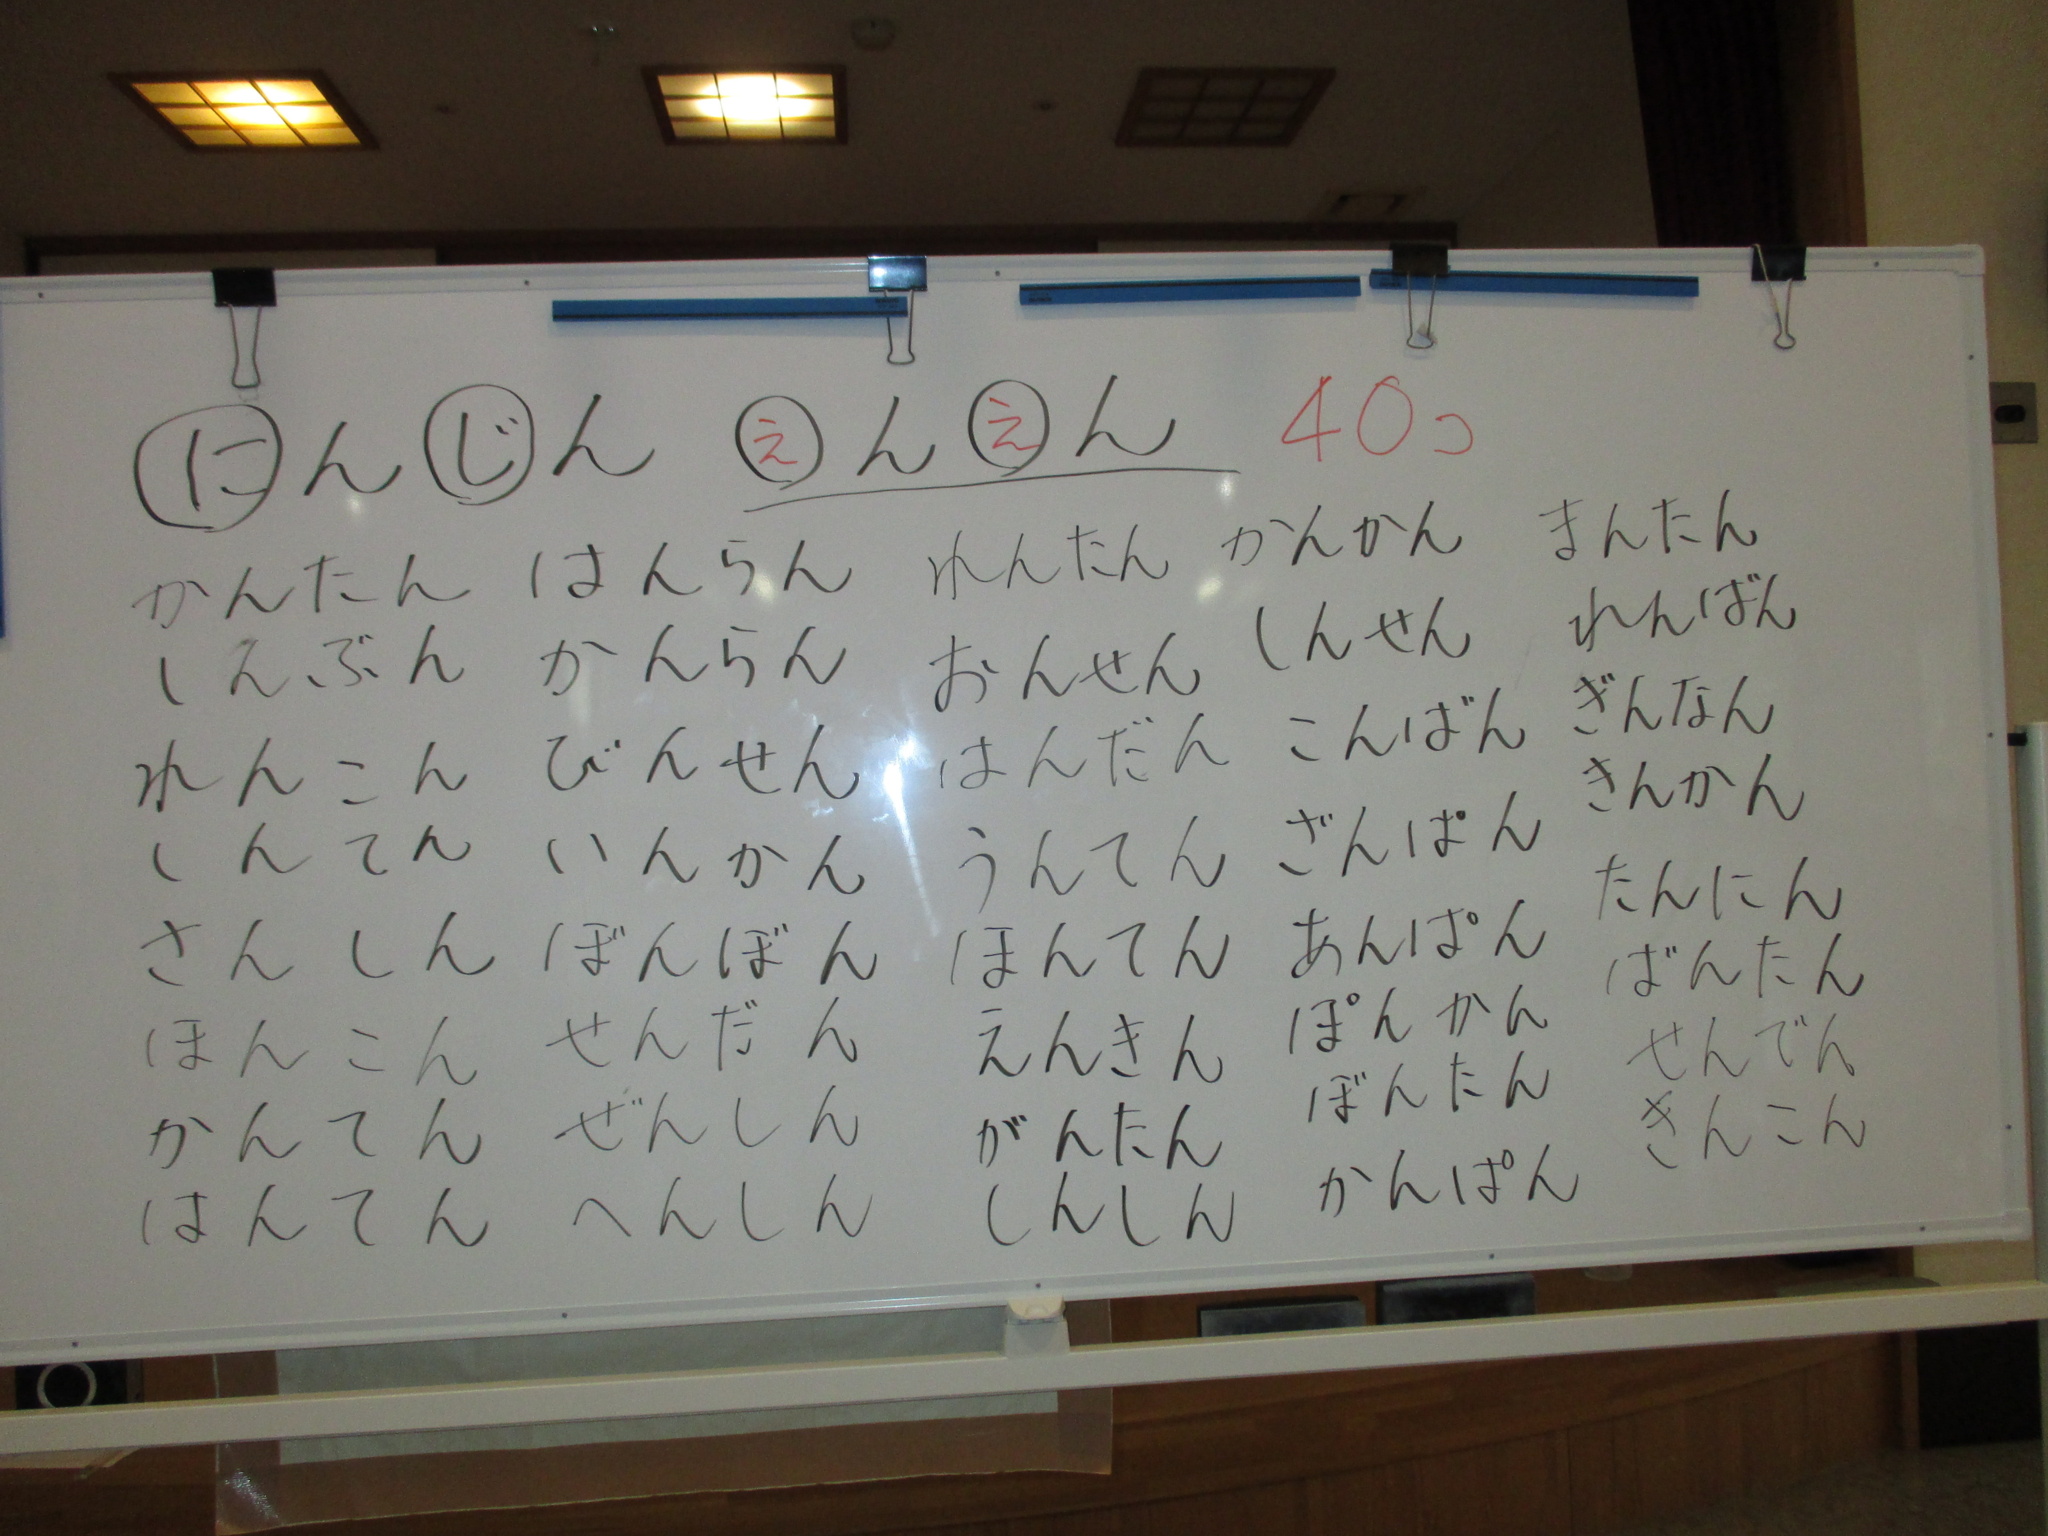 にんじん えんえん 40コ
かんたん
しんぶん
れんこん
しんてん
さんしん
ほんこん
かんてん
はんてん
はんらん
かんらん
びんせん
いんかん
ぼんぼん
せんだん
ぜんしん
へんしん
れんたん
おんせん
はんだん
うんてん
ほんてん
えんきん
がんたん
しんしん
かんかん
しんせん
こんばん
ざんぱん
あんぱん
ぽんかん
ぼんたん
かんぱん
まんたん
れんばん
ぎんなん
きんかん
たんにん
ばんたん
せんでん
きんこん